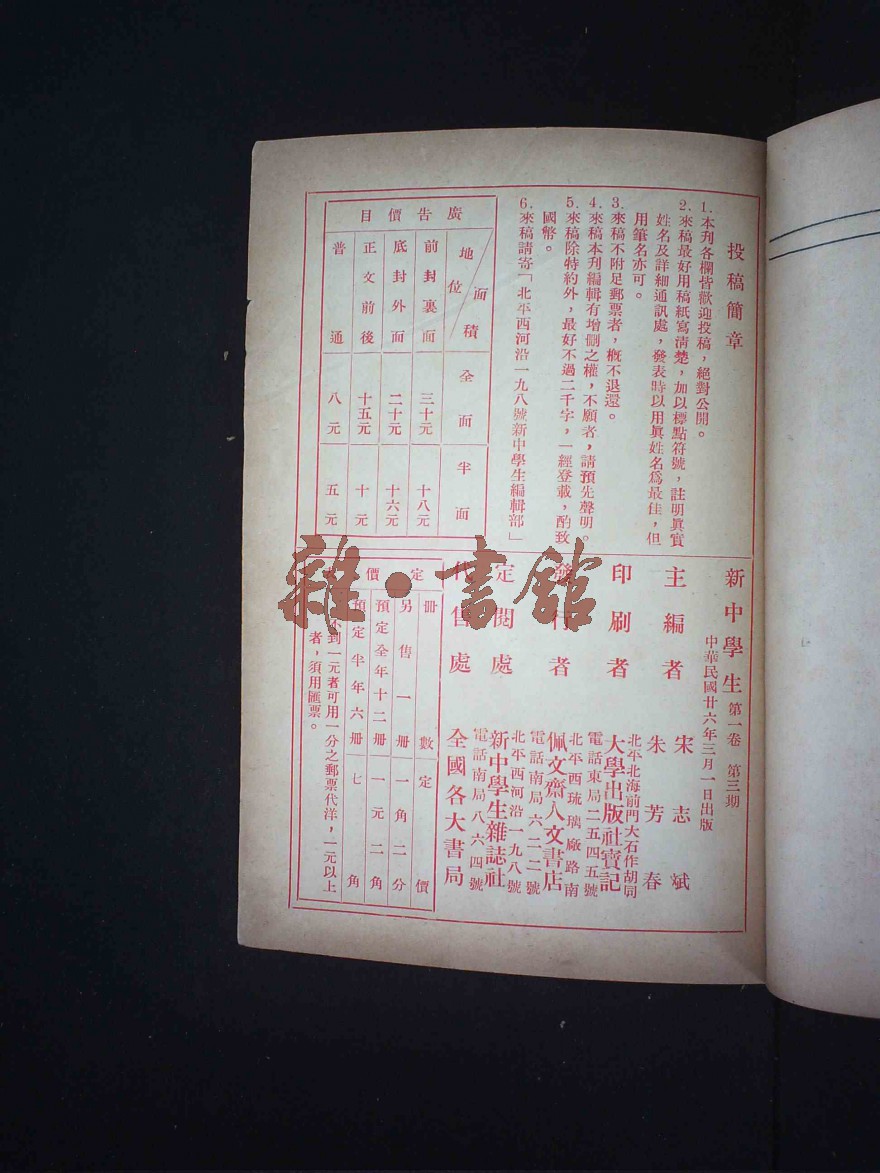 投稿簡章
1. 本刊各欄皆歡迎投稿，絕對公開。
2. 來稿最好用稿紙寫清楚，加以標點符號，註明眞實
姓名及詳細通訊處，發表時以用眞姓名爲最佳，但
用筆名亦可。
3. 來稿不附足郵票者，槪不退還。
4. 來稿本刊編輯有增删之權，不願者，請預先聲明。
5. 來稿除特約外，最好不過二千字，一經登載，酌致
國幣。
6. 來稿請寄「北平西河沿一九八號新中學生編輯部」
廣告價目
地位 面積 全面 半面
前封裏面 三十元 十八元
底封外面 二十元 十六元
正文前後 十五元 十元
普通 八元 五元
新中學生 第一卷 第三期
中華民國廿六年三月一日出版
主編者 宋志斌
朱芳春
印刷者 大學出版社寶記
北平北海前門大石作胡同
電話東局二五四五號
發行者 佩文齋人文書店
北平西琉璃廠路南
電話南局六二二號
定閱處 新中學生雜誌社
北平西河沿一九八號
電話南局八六四號
代售處 全國各大書局
定價
冊數 定價
另售一冊 一角二分
預定全年十二冊 一元二角
預定半年六冊 七角
不到一元者可用一分之郵票代洋，一元以上
者，須用匯票。
雜·書館